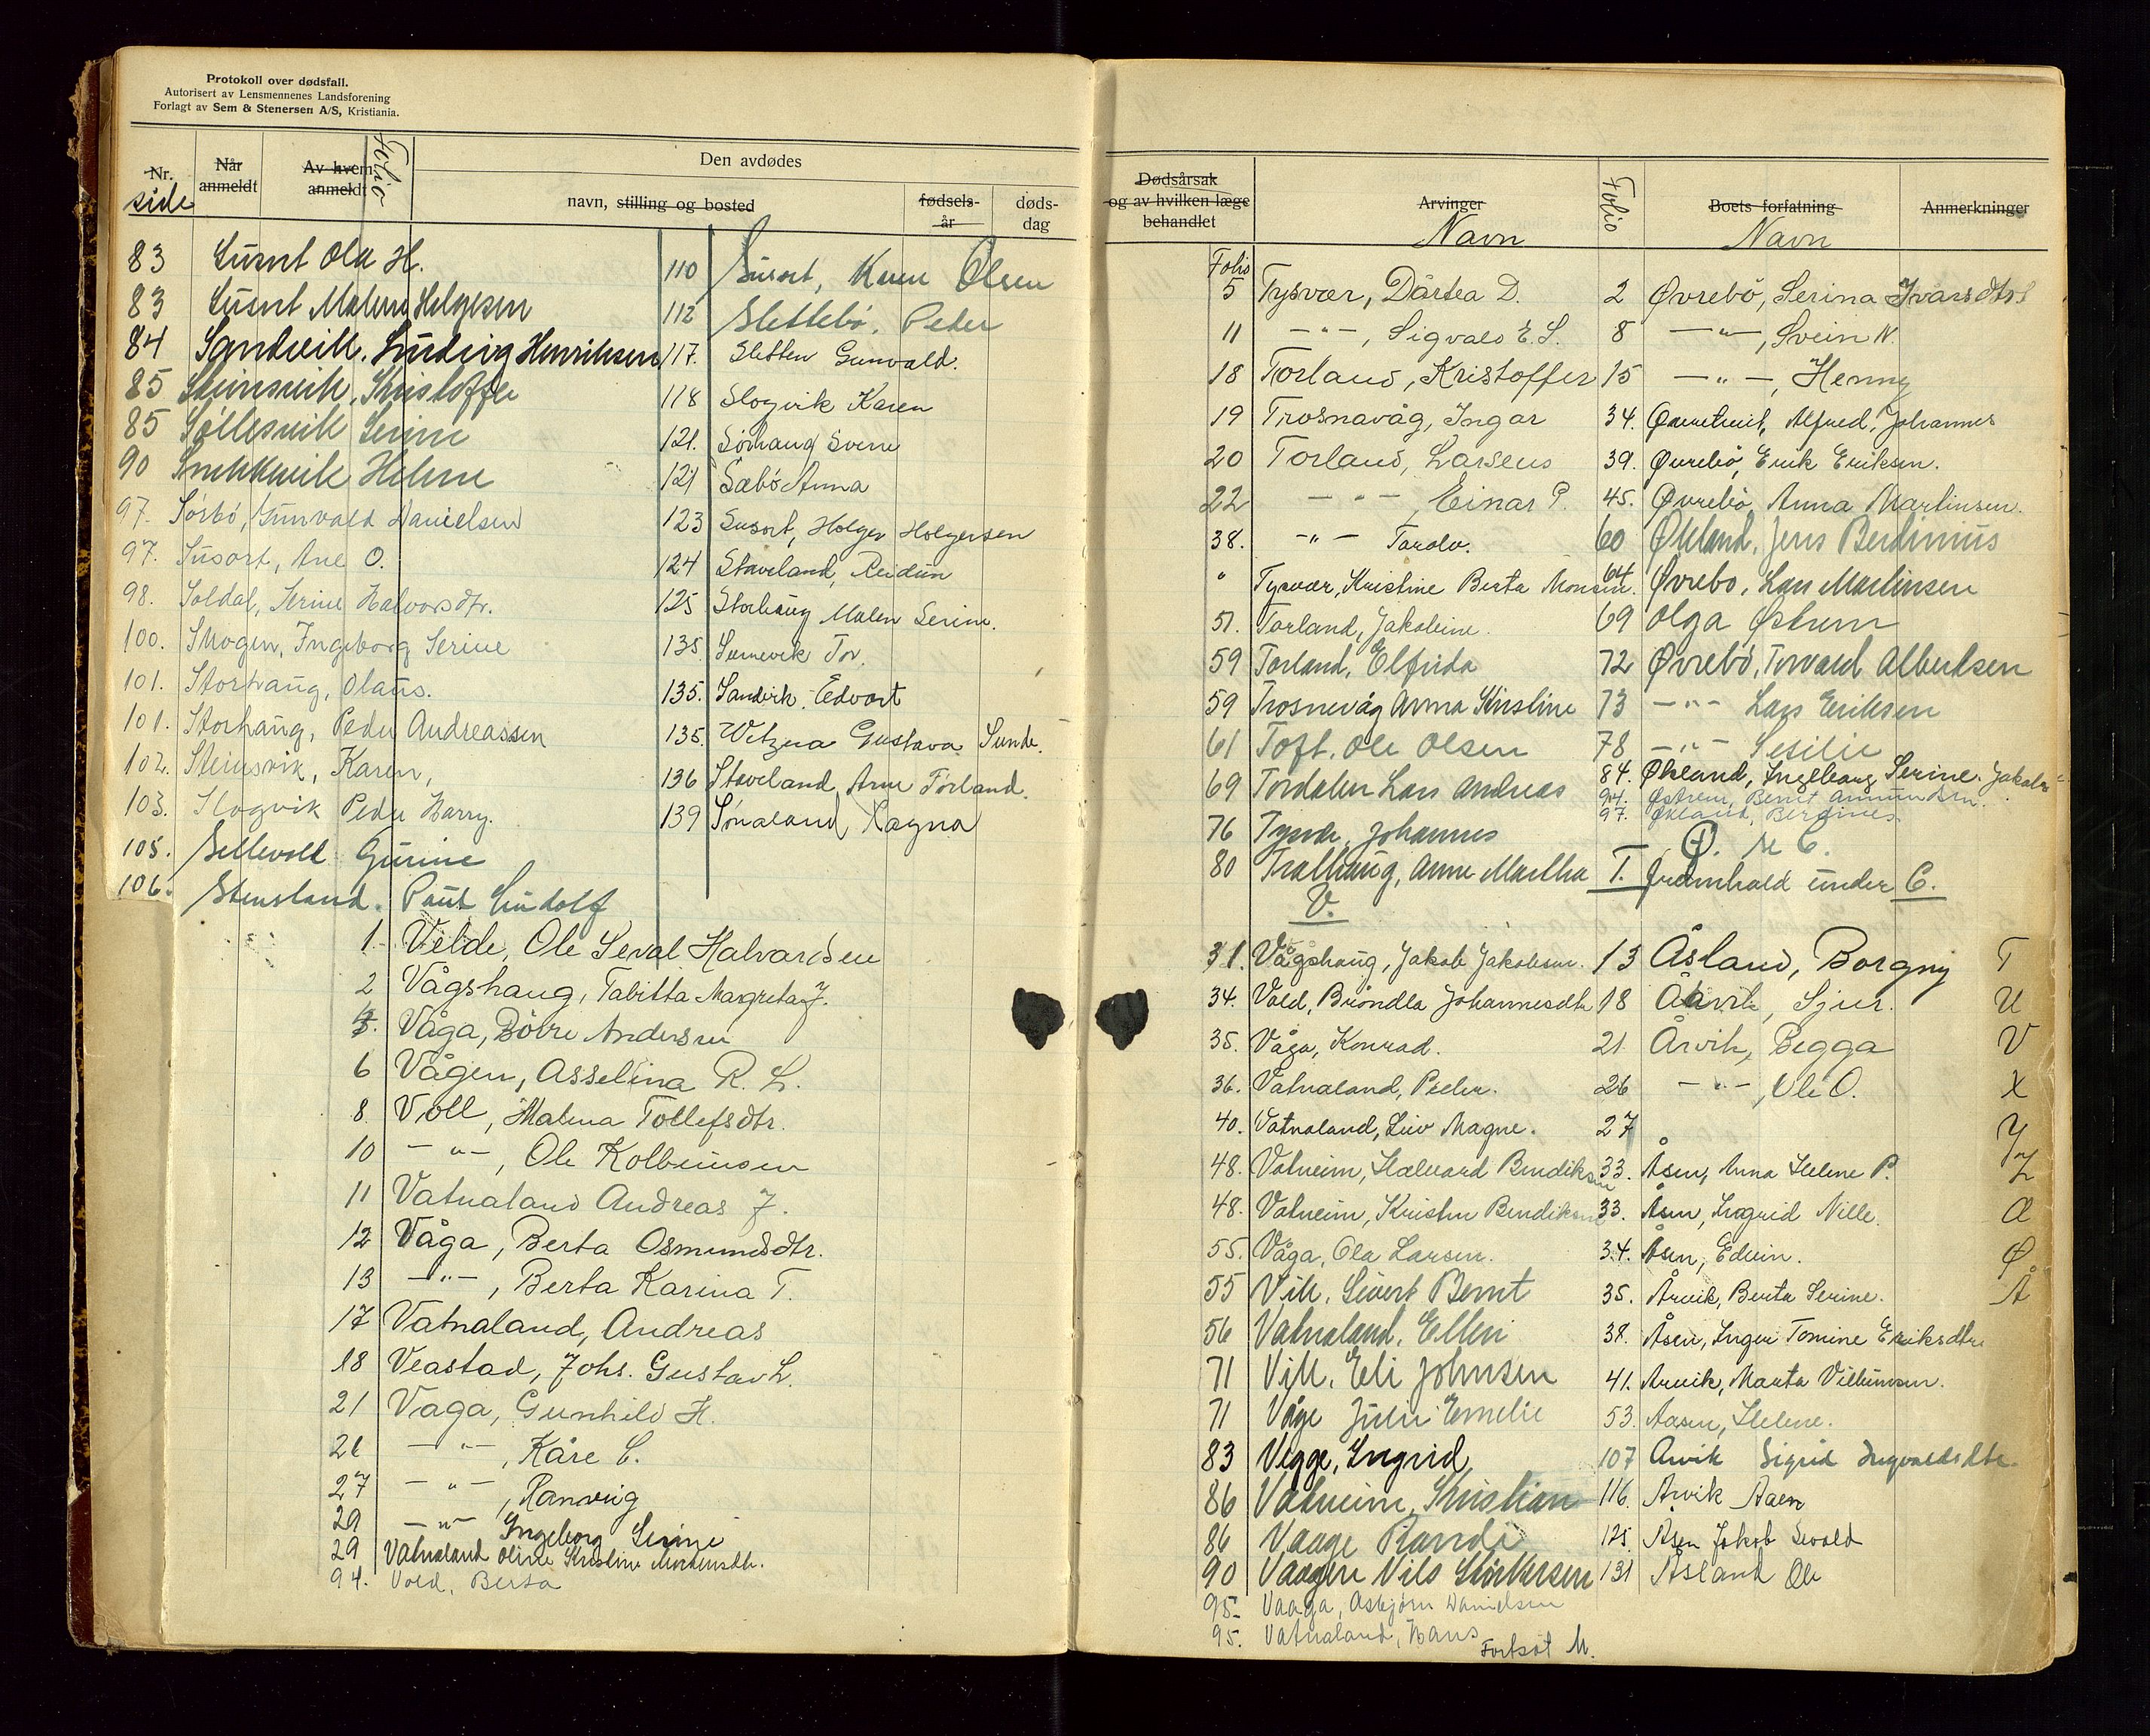 Protokoll over dødsfall.
Autorisert av Lensmennenes Landsforening
Forlagt av Sem & Stenersen A/S, Kristiania.
Nr.
side
Når anmeldt
Av hvem anmeldt
Folio
Den avdødes
navn, stilling og bosted
fødsels-år
døds-dag
83 Susort Ola H.
83 Susort Malene Helgesen
84 Sandvik, Ludvig Henriksen
85 Steinsvik, Kristoffer
85 Søllesvik Serine
90 Helene
97. Sörbö, Gunvald Danielsen
97. Susort, Ane O.
98. Soldal, Serine Halvorsdtr.
100. Skogen, Ingeborg Serine
101. Storhaug, Olaus.
101. Storhaug, Peder Andreassen
102. Steinsvik, Karen,
103. Slogvik Peder Harry.
105. Sellevold Gurine
106. Stensland. Paul Ludolf
110 Susort, Knut Olsen
112 Slettebö, Peder
117. Sletten Gunvald.
118 Slogvik Karen
121. Sørhaug Sverre
121 Sæbö Anna
123 Susort, Holger Holgersen
124 Staveland, Reidun
125 Storhaug Malen Serine.
135. Tor.
135. Sandvik, Edvart
135. Gustava Sunde.
136 Staveland Arne Førland.
139 Ragna
1. Velde, Ole Seval Halvardsen
2 Vågshaug, Tabitta Margreta J.
5. Våga, Börre Andersen
6 Vågen, Asselina R. L.
8. Voll, Malena Tollefsdtr.
10 -"-, Ole Kolbeinsen
11 Vatnaland Andreas J.
12 Våga, Berta Osmundsdtr.
13 -"-, Berta Karina T.
17 Vatnaland, Andreas
18 Veastad, Johs. Gustav L.
21 Våga, Gunhild H.
21 -"-, Kåre C.
27 -"-, Ranveig
29 -"- Ingeborg Serine
29 Vatnaland Olive Kristine Mortensdtr.
94. Vold, Berta
Dødsårsak
og av hvilken læge
behandlet
Arvinger
Navn
Folio
Boets forfatning
Navn
Anmerkninger
Folio
5 Tysvær, Dårtea D.
11 -"-, Sigvald E. S.
18 Torland, Kristoffer
19 Trosnavåg, Ingar
20 Torland, Larsens
22 -"-, Einar P.
38. -"- Torolv.
" Tysvær, Kristine Berta Monsen.
51. Torland, Jakobine.
59 Torland, Elfrida
59 Trosnevåg Anna Kristine
61 Toft, Ole Olsen
69 Tordalen Lars Andreas
76 Tysvær, Johannes
80 Tralhaug, Anne Martha
2 Øvrebö, Serina Ivarsdtr.
8 -"-, Svein N.
15 -"-, Henny
34. Alfred, Johannes
39. Øvrebö, Erik Eriksen.
45. Øvrebö, Anna Martinsen.
60 Økland, Jens Berdinius
64 Øvrebo, Lars Martinsen
69 Olga Østrem
72 Øvrebö, Torvald Albertsen
73 -"- Lars Eriksen
78 -"- Sesilie
84. Økland, Ingeborg Serine Jakobs
94. Østrem, Bernt Amundsen.
97. Økland, Berdines
Ø. se C.
T. framhald under C.
V.
31. Vågshaug, Jakob Jakobsen.
34. Vold, Bröndla Johannesdtr
35. Våga, Konrad.
36. Vatnaland, Peder.
40. Vatnaland, Liv Magne.
48. Vatneim, Halvard Bendiksen
48. Vatneim, Kristen Bendiksen
55. Våga, Ola Larsen.
55 Vik, Sivert Bernt
56 Vatnaland, Ellen
71 Vik, Eli Johnsen
71 Våge Emelie
83 Vegge, Ingrid
86 Vatneim, Kristian
86 Vaage Randi
90 Vaagen Nils Størkersen
95. Vaaga, Asbjørn Danielsen
95. Vatnaland, Hans
Fortsat M.
13 Åsland, Borgny
18 Årvik, Sjur.
21 Årvik, Begga
26 -"-, Ole O.
27
33. Åsen, Anna Helene P.
33. Åsen, Ingrid Nille.
34. Åsen, Edvin.
35. Årvik, Berta Serine.
38. Åsen, Inger Tomine Eriksdtr.
41. Arvik, Marta Villumsen.
53. Aasen, Helene.
107 Arvik Sigrid Ingvaldsdtr.
116. Arvik Aaen
125. Åsen Jakob Sevald
131 Åsland Ole
T
U
V
X
Y
Z
Æ
Ø
Å